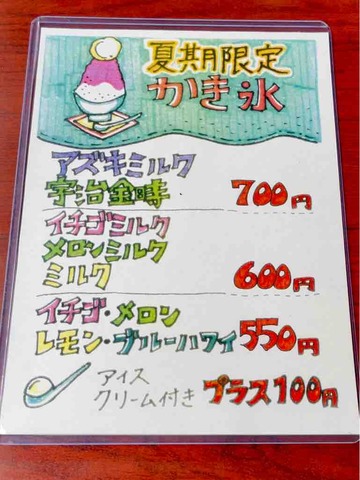 夏期限定
かき氷
アズキミルク
宇治金時 700円
イチゴミルク
メロンミルク
ミルク 600円
イチゴ・メロン
レモン・ブルーハワイ 550円
アイス
クリーム付き プラス100円